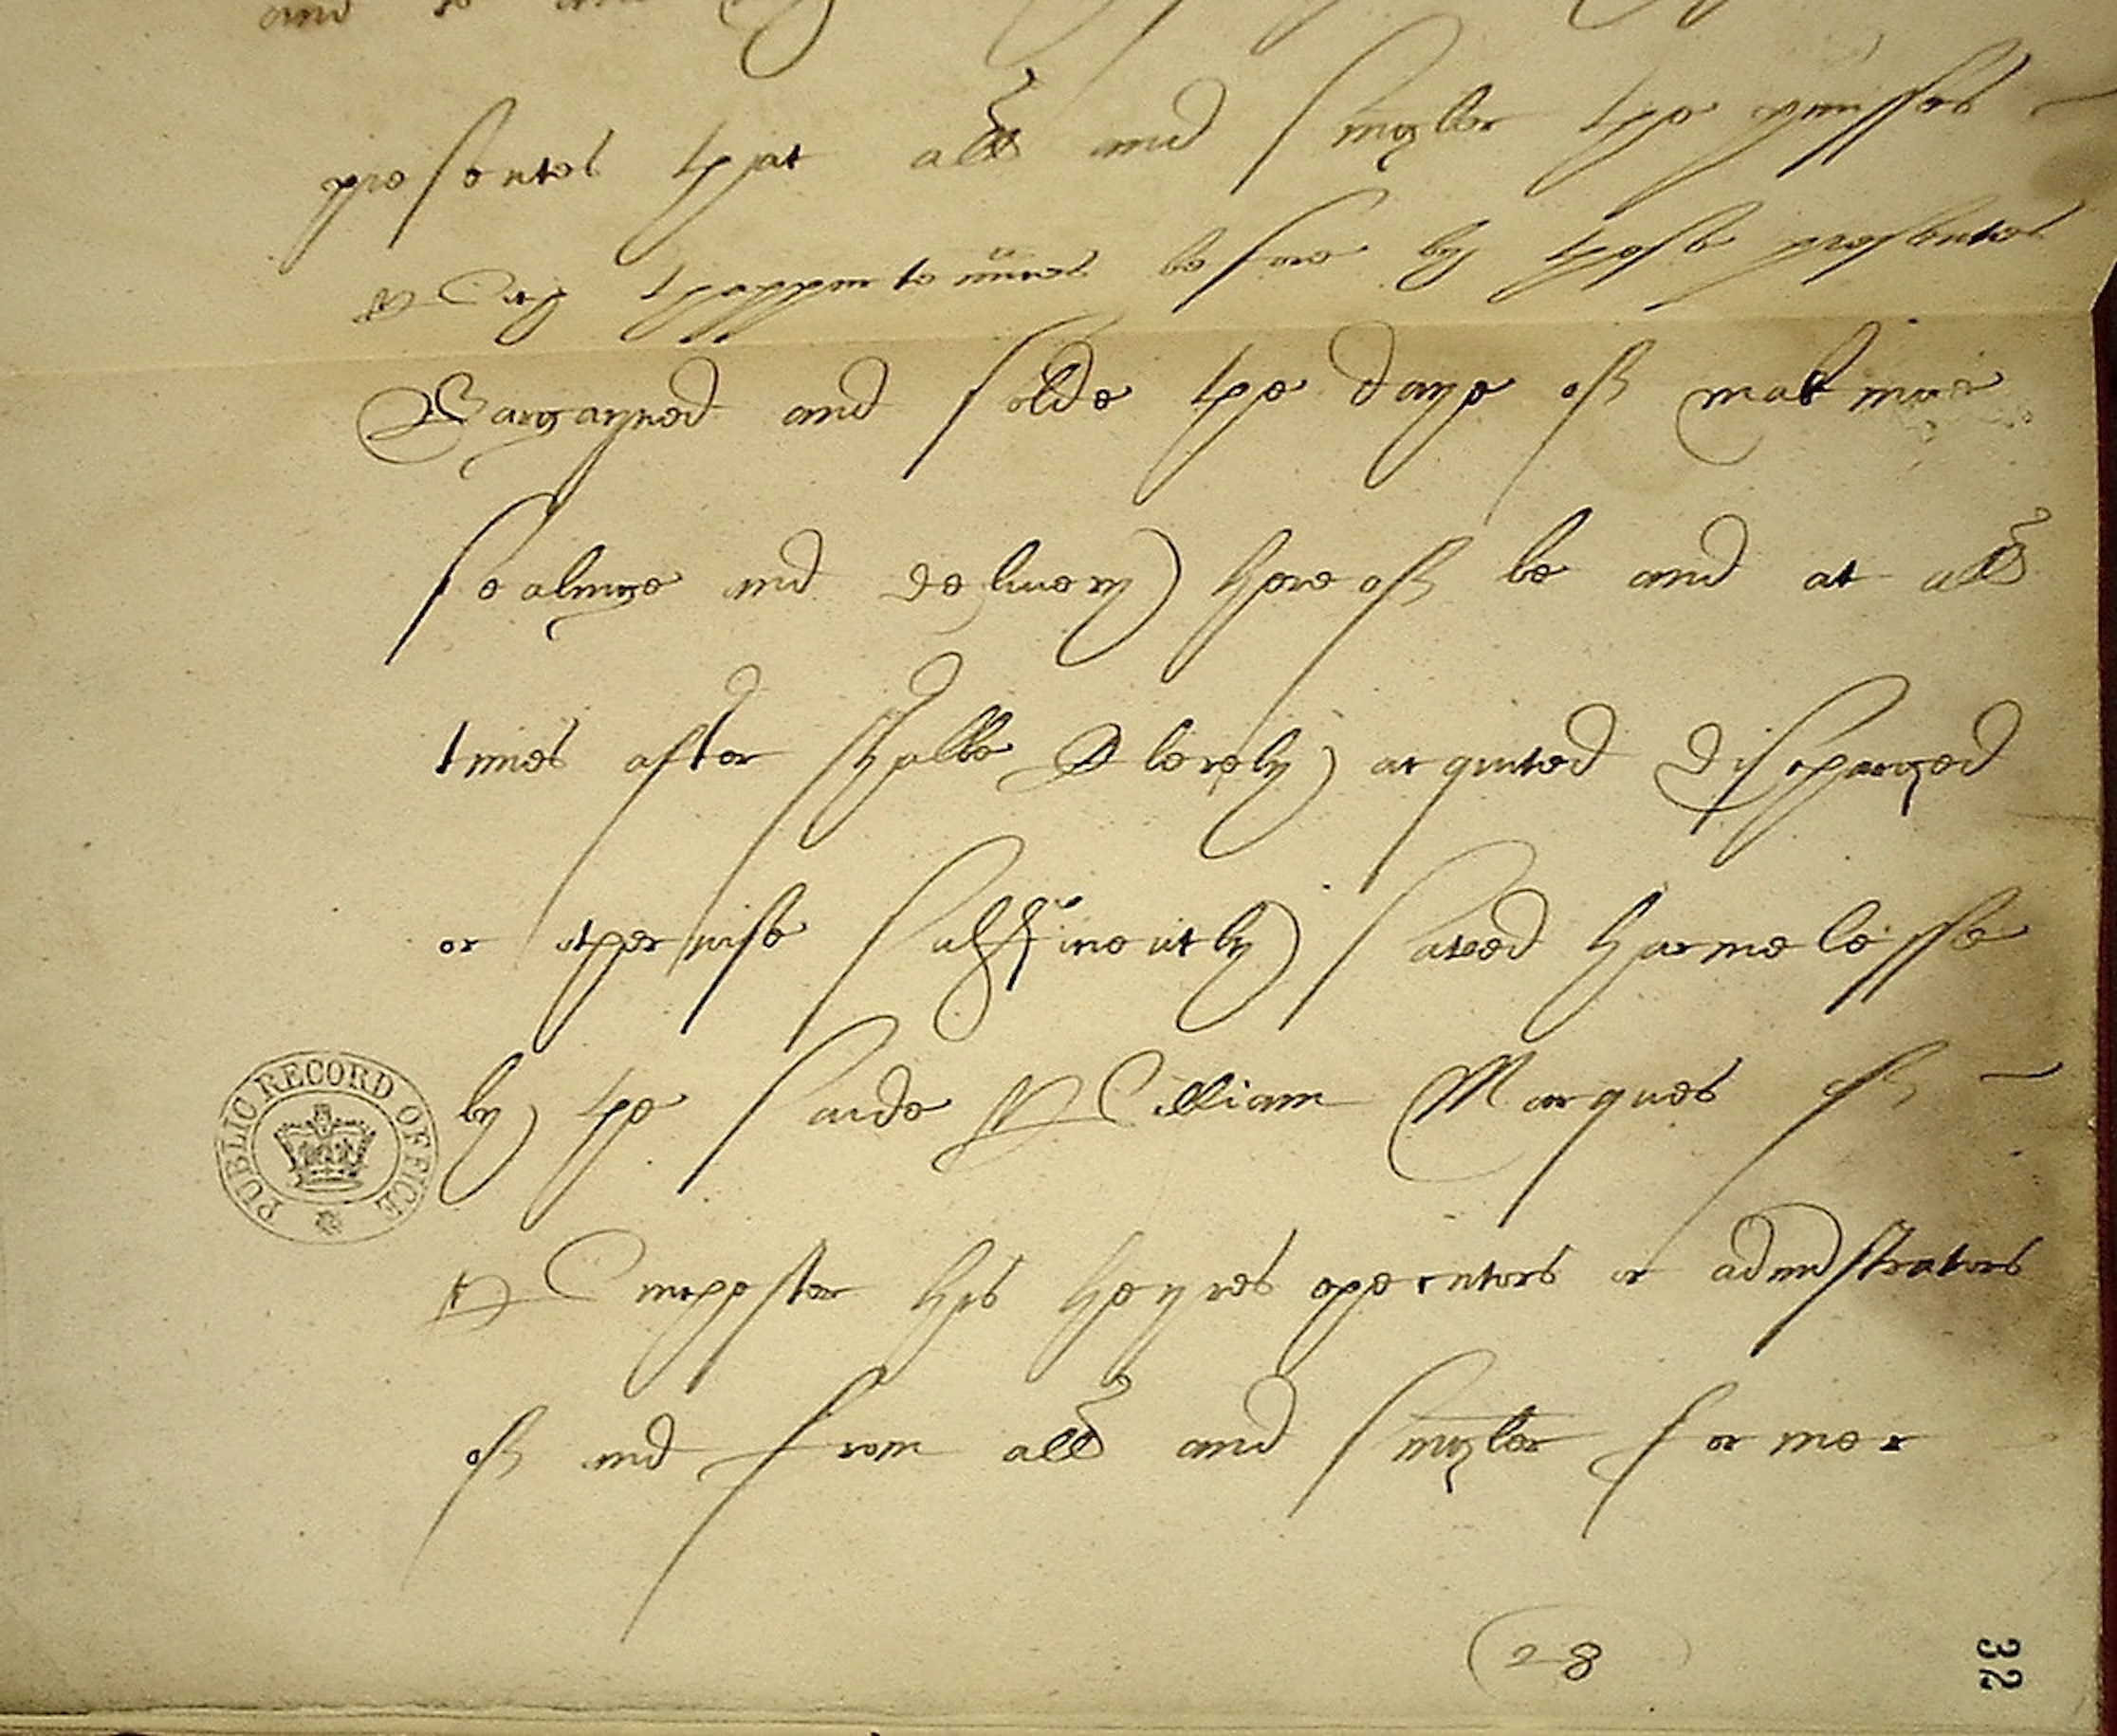 and to and
presentes that all and singler the premisses
With thappertennces before by these presentes
Bargayned and solde the daye of makinge
sealinge and delivery hereof be and at all
times after shalbe Clerely acquited discharged
or otherwise sufficiently saved harmelesse
by the saide William Marques of
Winchester his heyres executors or administrators
of and from all and singler former
PUBLIC RECORD OFFICE
28
32